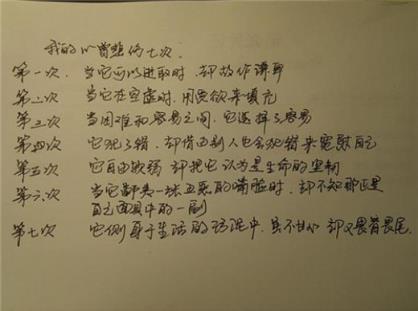 我的心曾悲伤七次
第一次 当它可以进取时,却故作谦卑
第二次 当它在空虚时,用爱欲来填充
第三次 当困难和容易之间,它选择了容易
第四次 它犯了错,却借由别人也会犯错来宽慰自己
第五次 它自由软弱,却把它认为是生命的坚韧
第六次 当它鄙夷一张丑恶的嘴脸时,却不知那正是
自己面具中的一副
第七次 它侧身于生活的污泥中,虽不甘心,却又畏首畏尾。